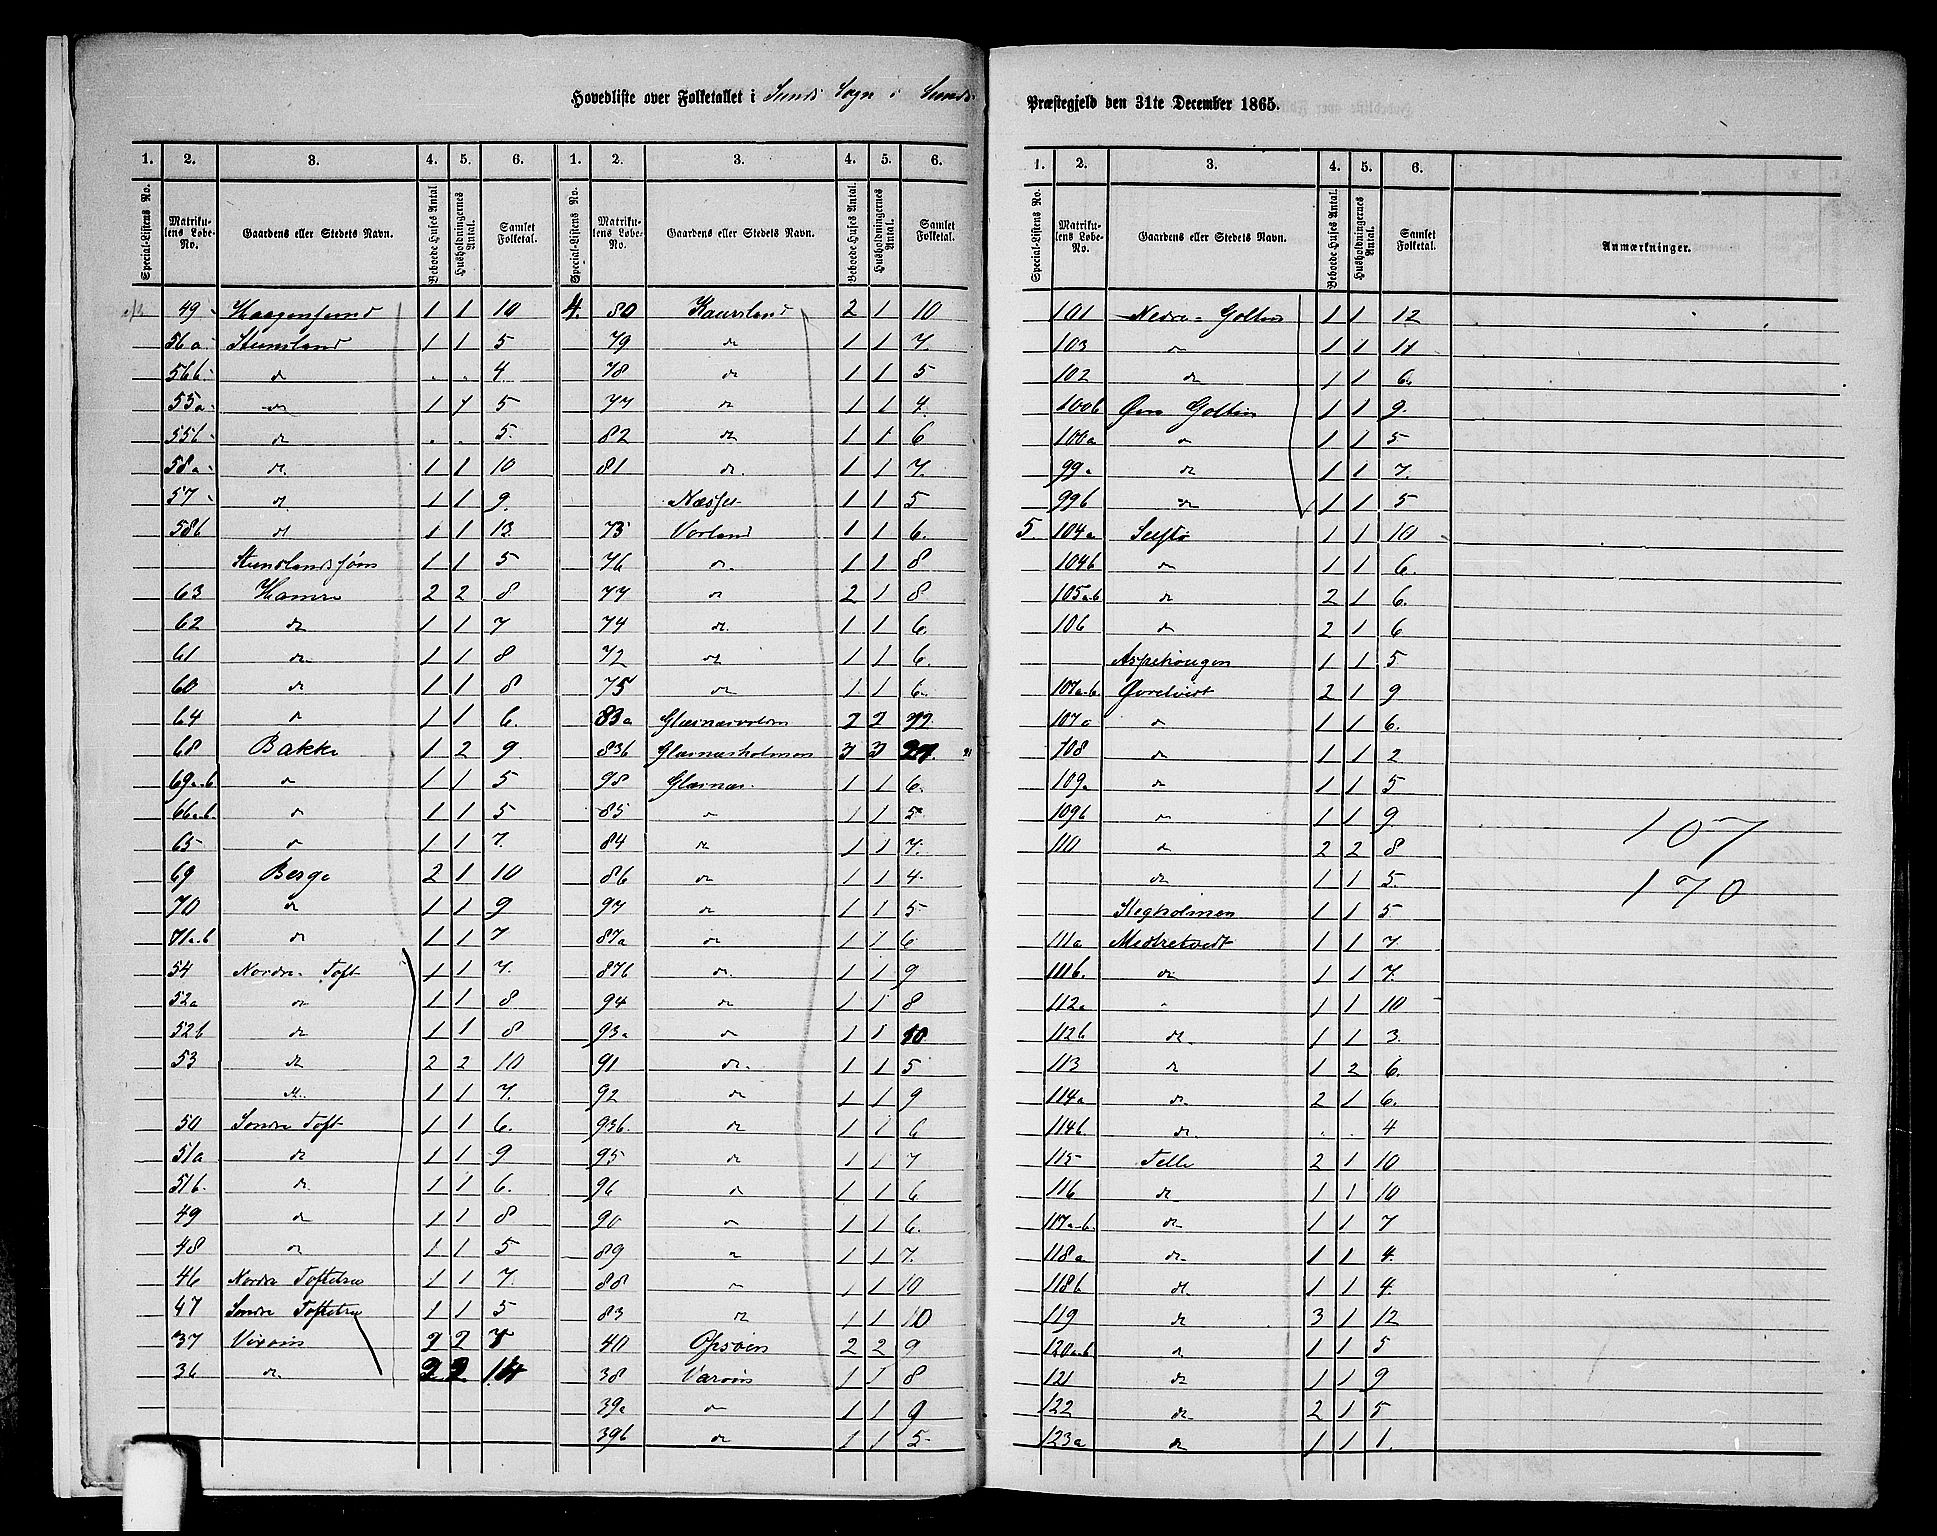 Hovedliste over Folketallet i Sunds Sogn i Sunds
Præstegjeld den 31te December 1865.
1. 2. 3. 4. 5. 6.
Special-Listens No. Matrikulens Løbe-No. Gaardens eller Stedets Navn. Beboede Huses Antal Husholdningernes Antal. Samlet Folketal.
49 Haagensund 1 1 10
56a Stunsland 1 1 5
56b do . . 4
55a do 1 1 5
55b do . . 5
58a do 1 1 10
57 do 1 1 9
58b do 1 1 13
1 1 5
63 Hamre 2 2 8
62 do 1 1 7
61 do 1 1 8
60 do 1 1 8
64 do 1 1 6
68 Bakke 1 2 9
69a-b do 1 1 5
66a-b do 1 1 5
65 do 1 1 7
69 Berge 2 1 10
70 do 1 1 9
71a-b do 1 1 7
54 Nordre Toft 1 1 7
52a do 1 1 8
52b do 1 1 8
53 do 2 2 10
do 1 1 7
50 Søndre Toft 1 1 6
51a do 1 1 9
51b do 1 1 6
49 do 1 1 8
48 do 1 1 5
46 Nordre 1 1 7
47 Søndre 1 1 5
37 2 2
36 do 2 2 14
1. 2. 3. 4. 5. 6.
Special-Listens No. Matrikulens Løbe-No. Gaardens eller Stedets Navn. Beboede Huses Antal. Husholdningernes Antal. Samlet Folketal.
4. 80 Kausland 2 1 10
79 do 1 1 7
78 do 1 1 5
77 do 1 1 4
82 do 1 1 6
81 do 1 1 7
1 1 5
73 Vorland 1 1 6
76 do 1 1 8
77 do 2 1 8
74 do 1 1 6
72 do 1 1 6
75 do 1 1 6
83a 2 2
83b Glæsnæsholmen 3 3 21
98 Glæsnæs 1 1 6
85 do 1 1 5
84 do 1 1 7
86 do 1 1 4
97 do 1 1 5
87a do 1 1 6
87b do 1 1 9
94 do 1 1 8
93a do 1 1 10
91 do 1 1 5
92 do 1 1 9
93b do 1 1 6
95 do 1 1 7
96 do 1 1 6
90 do 1 1 6
89 do 1 1 7
88 do 1 1 10
83 do 1 1 10
40 Opsøen 2 2 9
38 Varøen 1 1 8
39a do 1 1 9
39b do 1 1 5
1. 2. 3. 4. 5. 6.
Special-Listens No. Matrikulens Løbe-No. Gaardens eller Stedets Navn. Beboede Huses Antal. Husholdningernes Antal. Samlet Folketal. Anmærkninger.
101 Nedre Golten 1 1 12
103 do 1 1 11
102 do 1 1 6
100b Øvre Golten 1 1 9
100a do 1 1 5
99a do 1 1 7
99b do 1 1 5
5 104a Selstø 1 1 10
104b do 1 1 6
105a-b do 2 1 6
106 do 2 1 6
Aspehougen 1 1 5
107a-b Øvretvedt 2 1 9
107a do 1 1 6
108 do 1 1 2
109a do 1 1 5
109b do 1 1 9
110 do 2 2 8
do 1 1 5
Skogholmen 1 1 5
111a Midtretvedt 1 1 7
111b do 1 1 7
112a 1 1 10
112b do 1 1 3
113 do 1 2 6
114a do 2 1 6
114b do . . 4
115 Telle 2 1 10
116 do 1 1 10
117a-b do 1 1 7
118a do 1 1 4
118b do 1 1 4
119 do 3 1 12
120a-b do 1 1 5
121 do 1 1 9
122 do 2 1 5
123a do 1 1 1
107
170